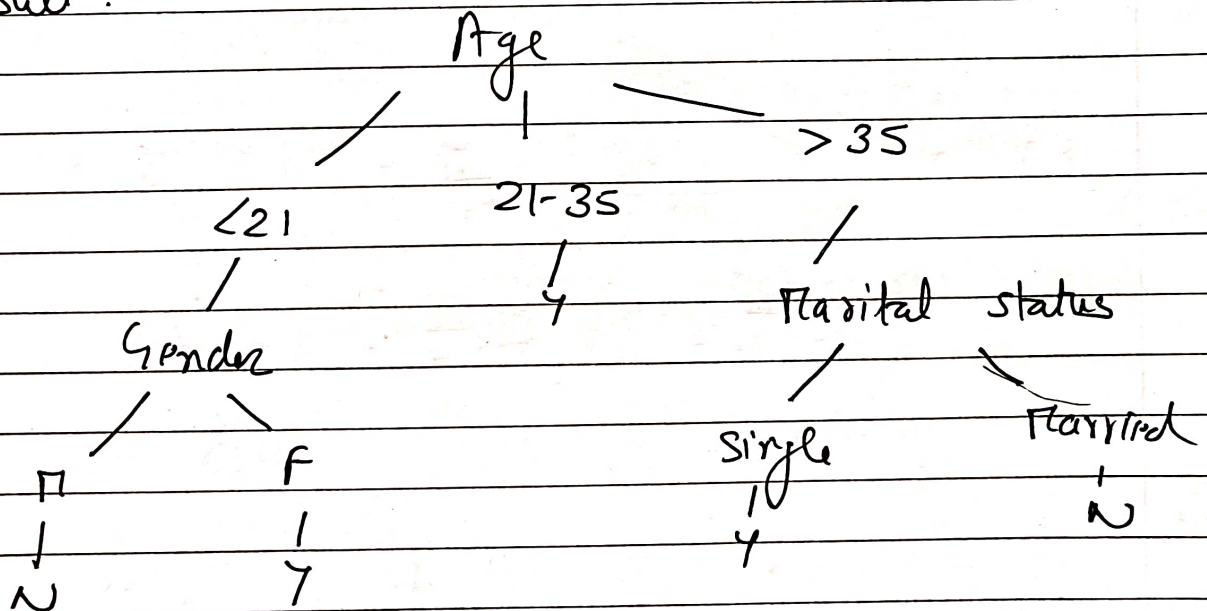 Age
<21 21-35 >35
Gender Y Marital status
M F Single Married
N Y Y N